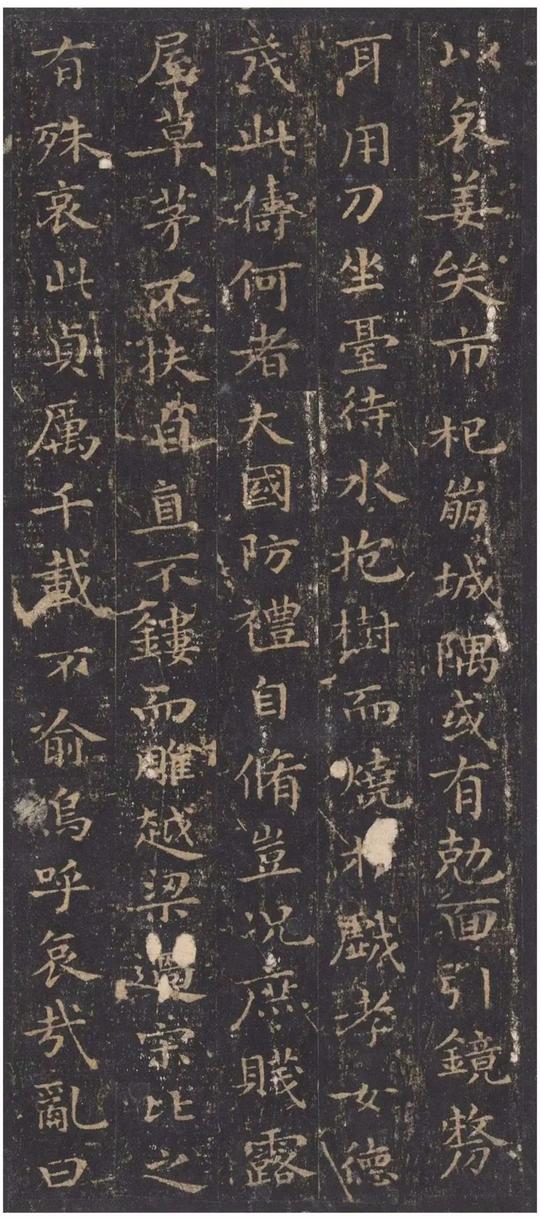 以哀姜矣市杞崩城隅或有勊面引鏡剺
耳用刀坐臺待水抱樹而燒於戲孝女德
茂此儔何者大國防禮自脩豈况庶賤露
屋草茅不扶自直不鏤而雕越梁過宋比之
有殊哀此貞厲千載不渝嗚呼哀哉亂曰